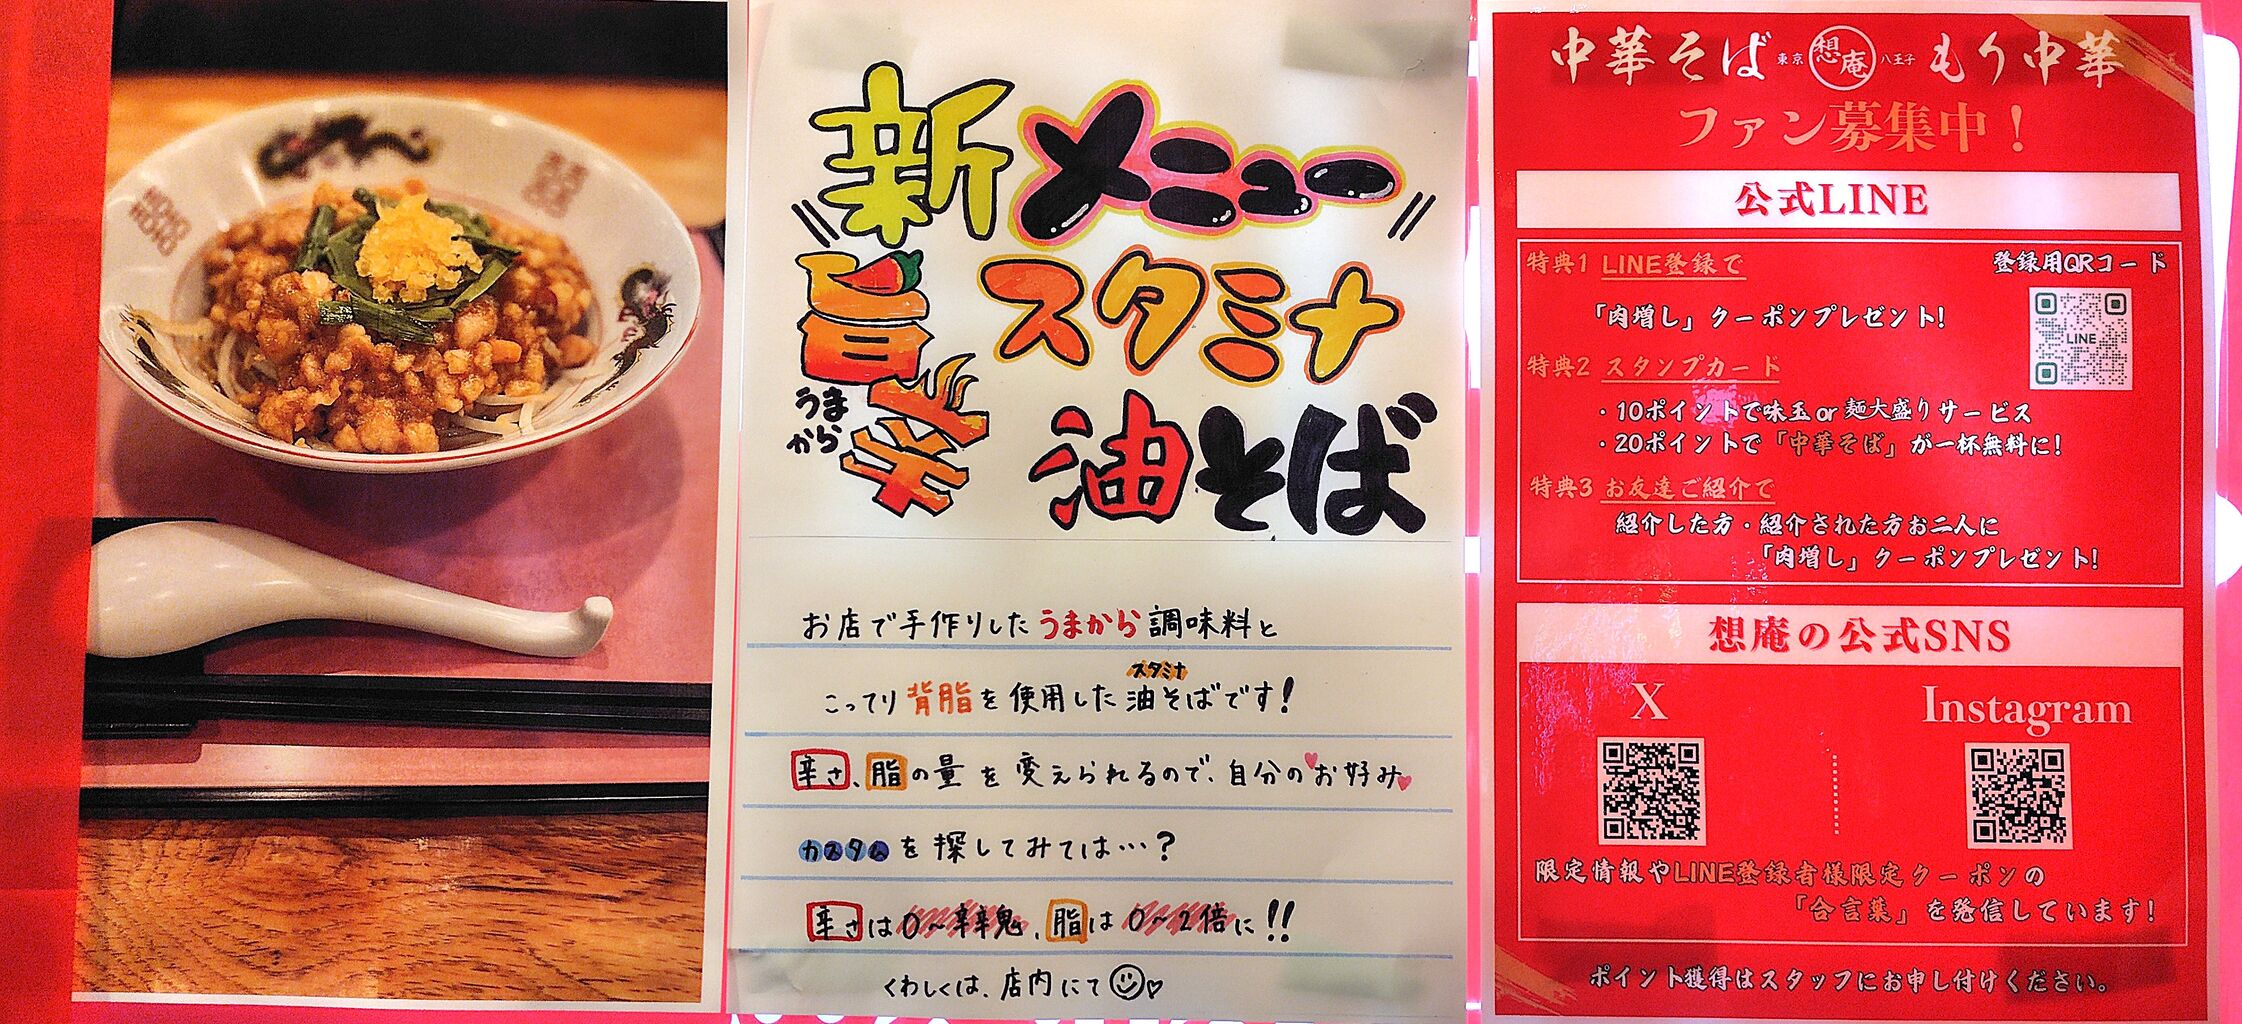 新メニュー
旨辛
うま
から
スタミナ
油そば
お店で手作りしたうまから調味料と
スタミナ
こってり背脂を使用した油そばです!
辛さ、脂の量を変えられるので、自分のお好み
カスタムを探してみては…?
辛さは0~辛辛鬼、脂は0~2倍に!!
くわしくは、店内にて
中華そば 東京 想庵 八王子 もり中華
ファン募集中!
公式LINE
特典1 LINE登録で
登録用QRコード
「肉増し」クーポンプレゼント!
LINE
特典2 スタンプカード
・10ポイントで味玉or麺大盛りサービス
・20ポイントで「中華そば」が一杯無料に!
特典3 お友達ご紹介で
紹介した方・紹介された方お二人に
「肉増し」クーポンプレゼント!
想庵の公式SNS
X
Instagram
限定情報やLINE登録者様限定クーポンの
「合言葉」を発信しています!
ポイント獲得はスタッフにお申し付けください。